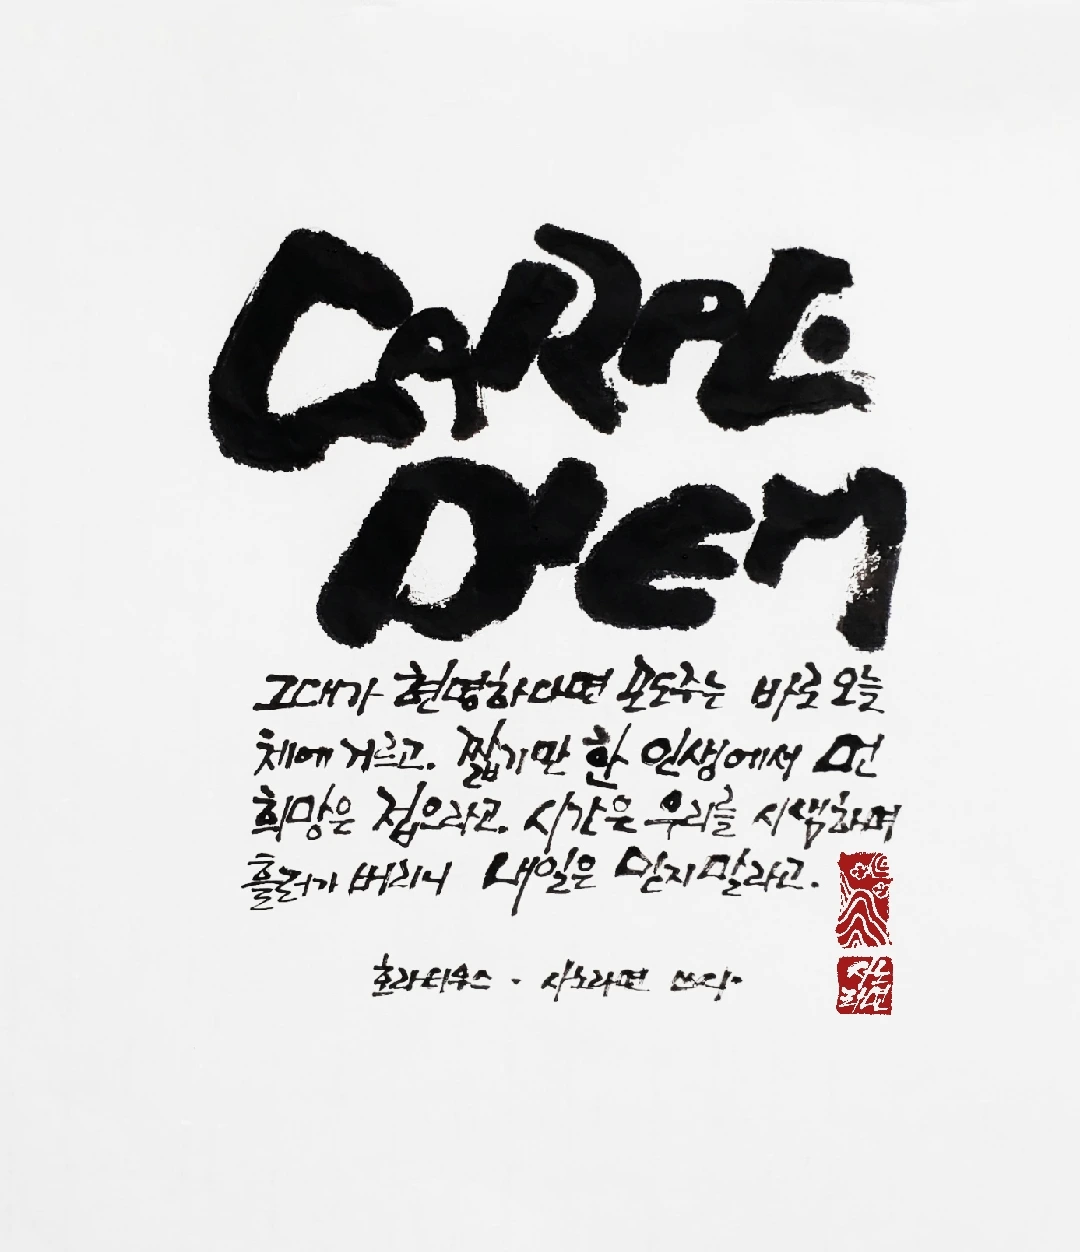 CARPE
DIEM
그대가 현명하다면 포도주는 바로 오늘
체에 거르고. 짧기만 한 인생에서 먼
희망은 접으라고. 시간은 우리를 시샘하며
흘러가 버리니 내일은 믿지 말라고.
호라티우스 · 시노라면 쓰다